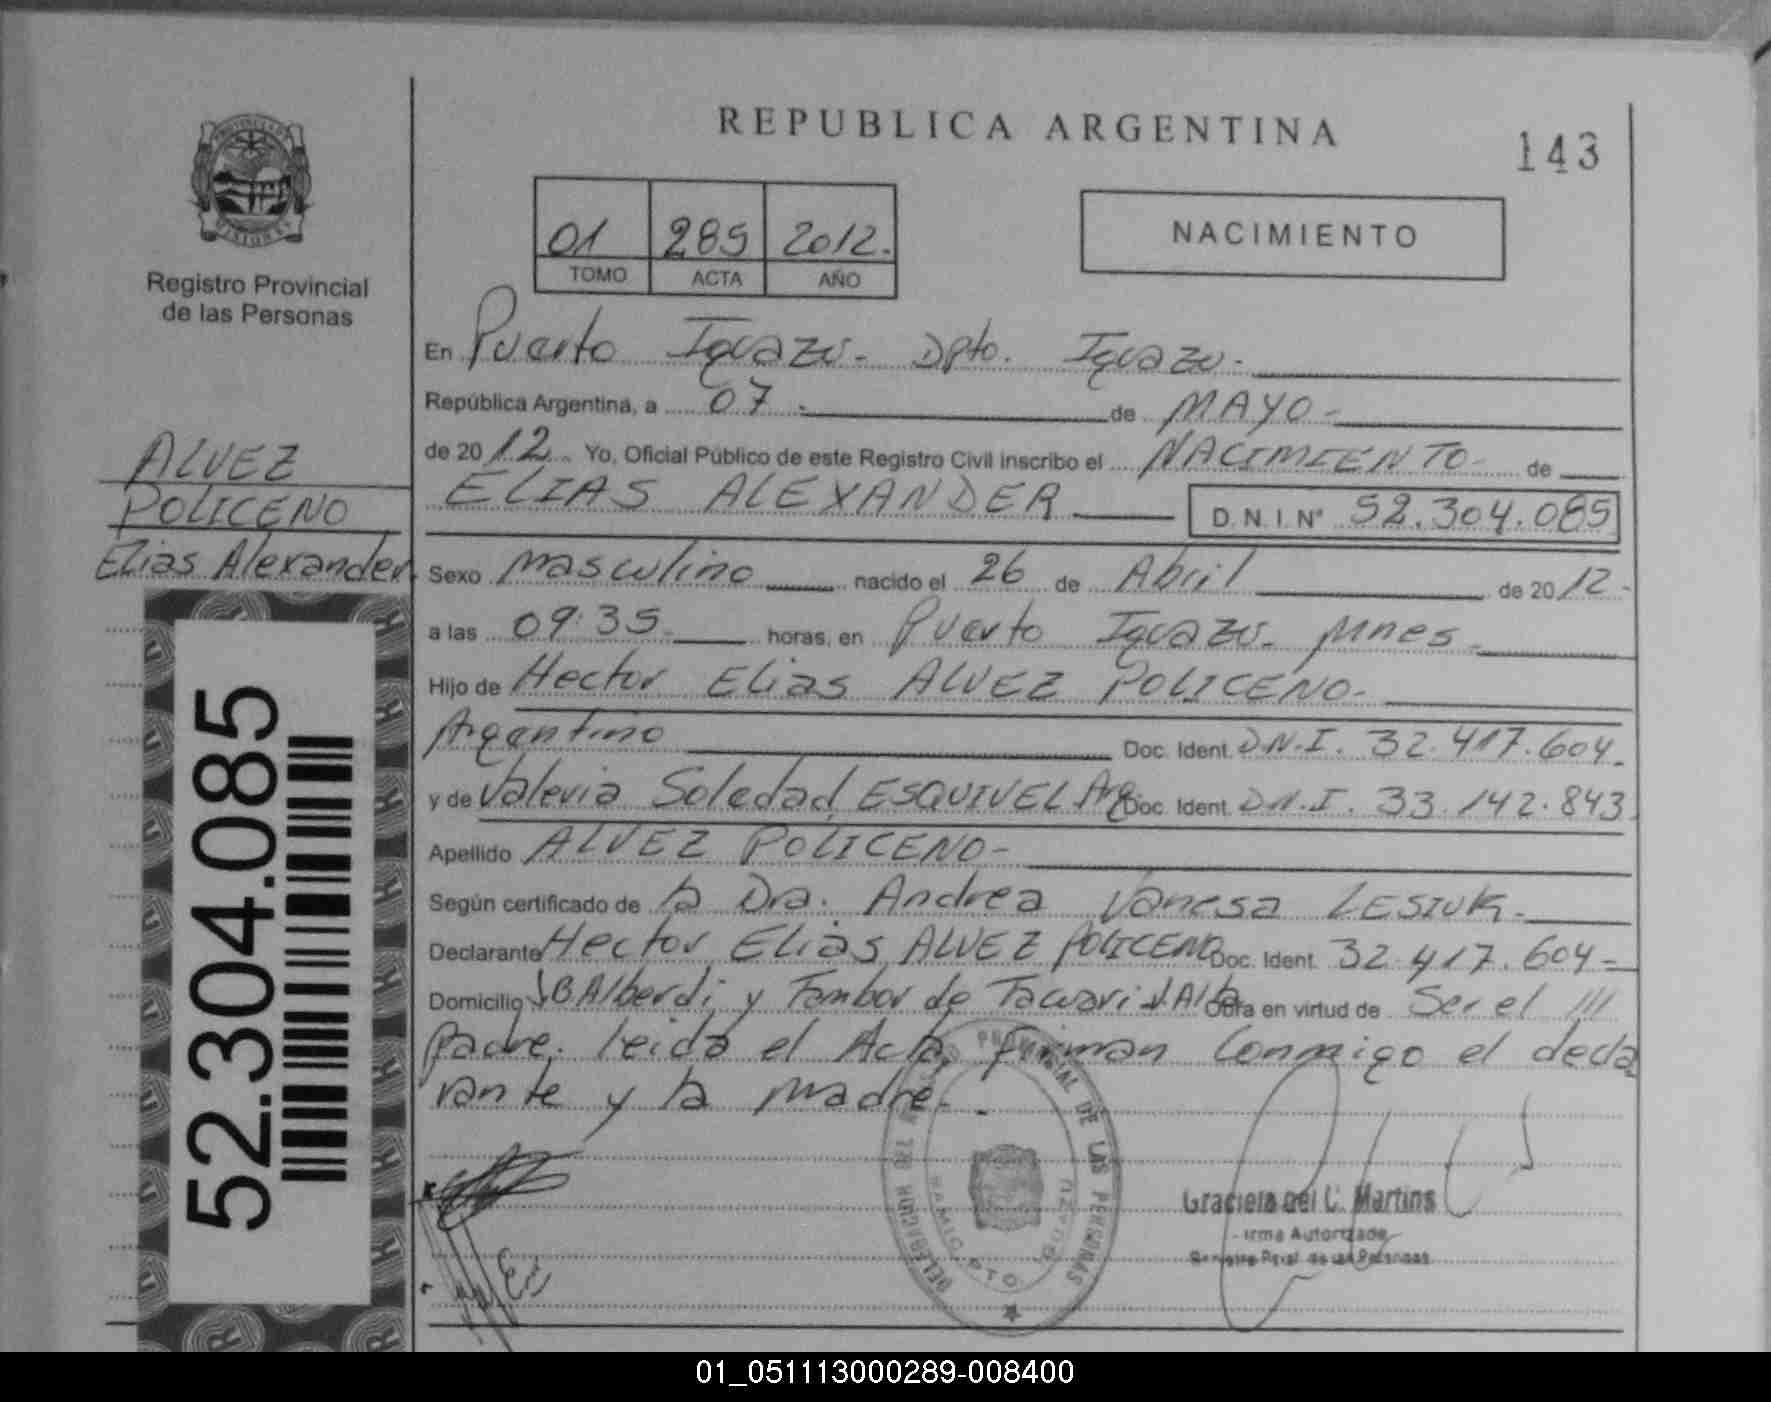 REPUBLICA ARGENTINA
143
01 285 2012.
TOMO ACTA AÑO
NACIMIENTO
PROVINCIA DE
MISIONES
Registro Provincial
de las Personas
En Puerto Iguazú - Dpto. Iguazu -
República Argentina, a 07 - de MAYO -
de 20 12 Yo, Oficial Público de este Registro Civil inscribo el NACIMIENTO - de
ELIAS ALEXANDER D.N.I.Nº 52.304.085
ALVEZ
POLICENO
Elias Alexander
52.304.085
Sexo masculino nacido el 26 de Abril de 20 12 -
a las 09:35 horas, en Puerto Iguazú - Mnes -
Hijo de Hector Elias ALVEZ POLICENO -
Argentino Doc. Ident. D.N.I. 32.417.604
y de Valeria Soledad ESQUIVEL Arg. Doc. Ident. D.N.I. 33.142.843
Apellido ALVEZ POLICENO -
Según certificado de la Dra. Andrea Vanesa LESIUK -
Declarante Hector Elias ALVEZ POLICENO Doc. Ident. 32.417.604 -
Domicilio JB Alberdi y Tambor de Tacuari V. Alta Obra en virtud de Ser el ///
padre, leida el Acta, firman Conmigo el decla
rante y la madre -
PROVINCIAL DE LAS PERSONAS
Graciela del C. Martins
Firma Autorizada
Registro Pcial. de las Personas
01_051113000289-008400